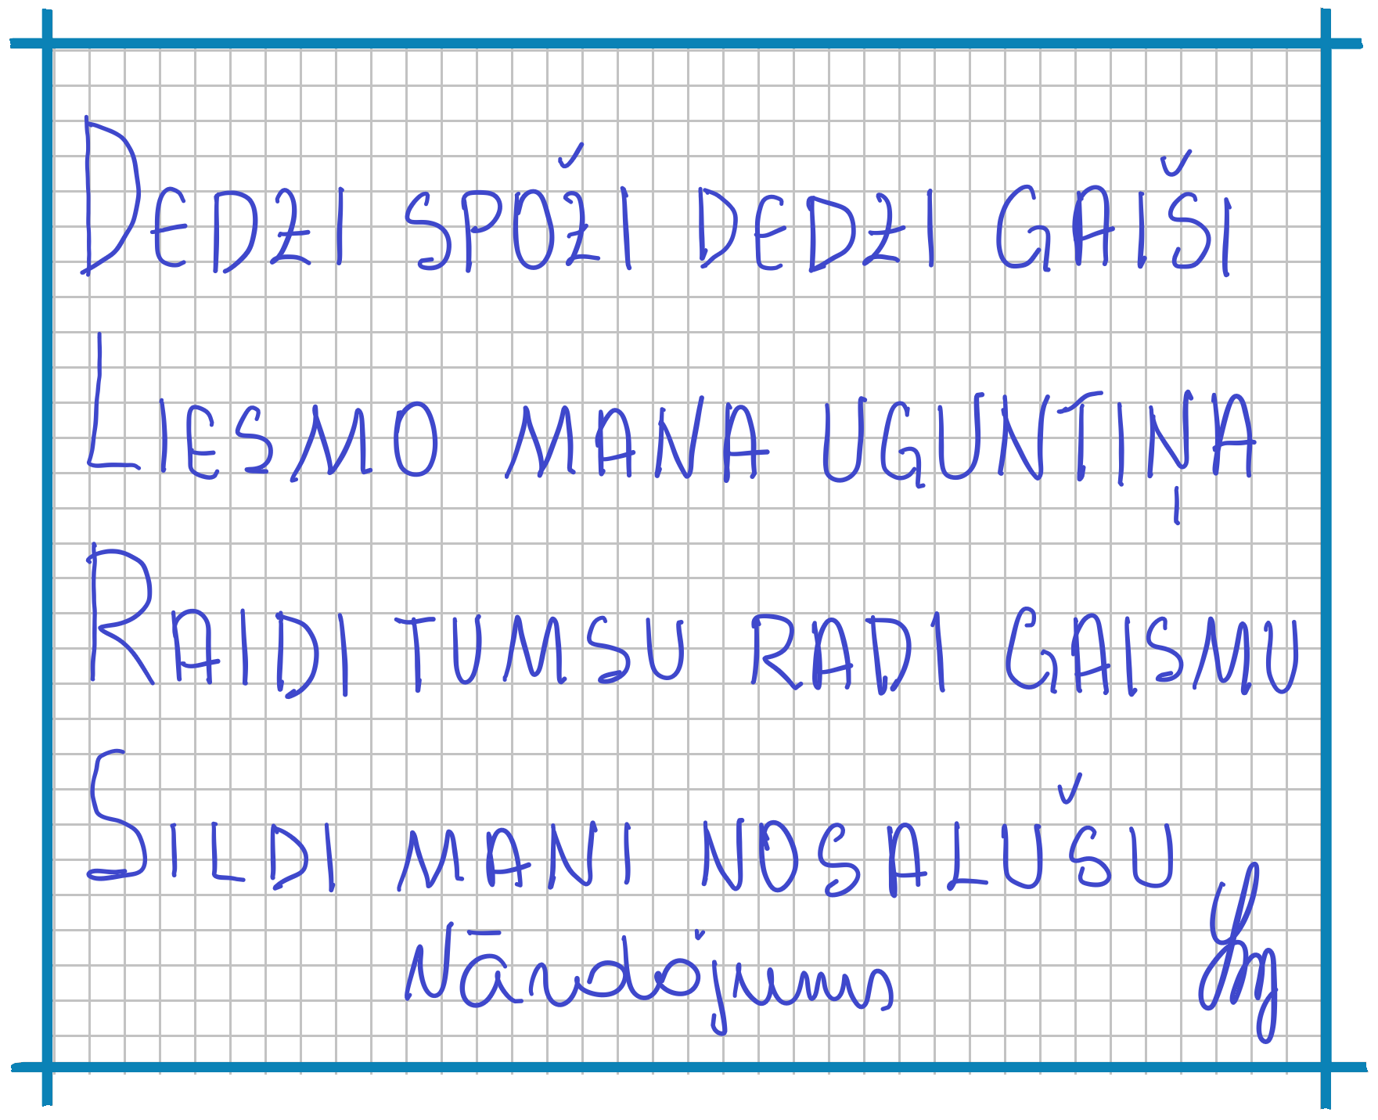 DEDZI SPOŽI DEDZI GAIŠI
LIESMO MANA UGUNTIŅA
RAIDI TUMSU RADI GAISMU
SILDI MANI NOSALUŠU